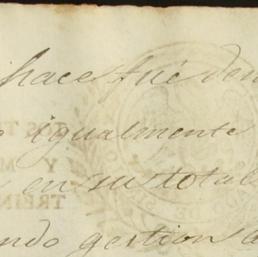 hace fué den
igualmente
en su total
ndo gestion a